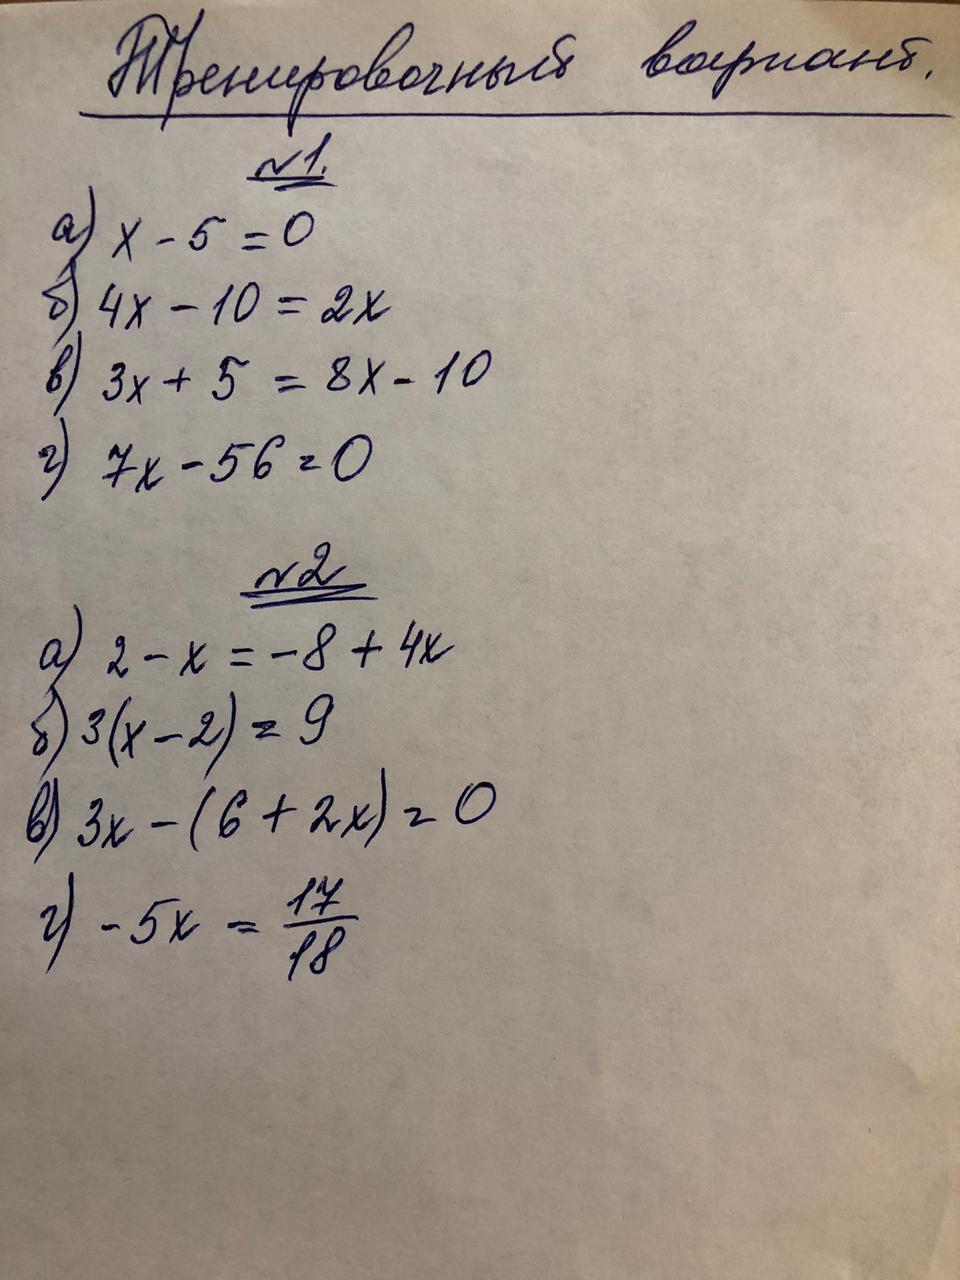 Тренировочный вариант.
№1.
а) x - 5 = 0
б) 4x - 10 = 2x
в) 3x + 5 = 8x - 10
г) 7x - 56 = 0
№2
а) 2 - x = -8 + 4x
б) 3(x - 2) = 9
в) 3x - (6 + 2x) = 0
г) -5x = 17/18